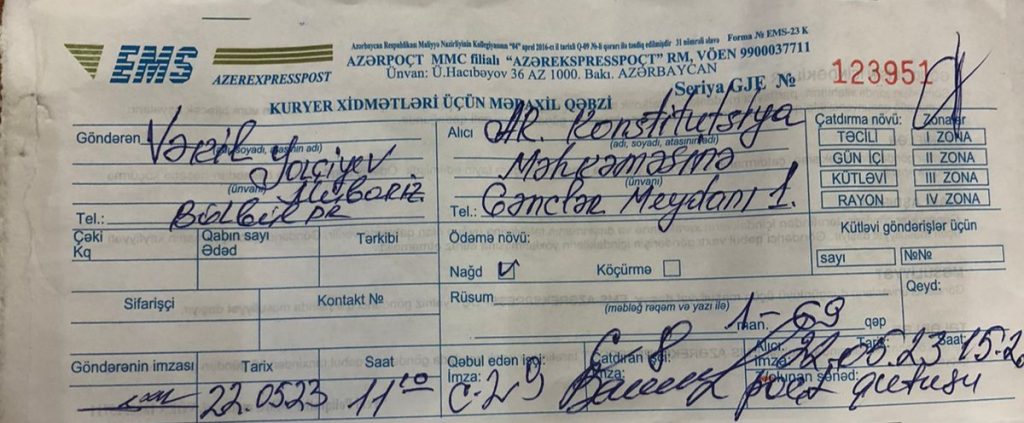 Azərbaycan Respublikan Maliyyə Nazirliyinin Kollegiyasının "04" aprel 2016-cı il tarixli Q-09 №-li qərarı ilə təsdiq edilmişdir 31 nömrəli əlavə Forma № EMS-23 K
EMS
AZEREXPRESSPOST
AZƏRPOÇT MMC filialı "AZƏREKSPRESSPOÇT" RM, VÖEN 9900037711
Ünvan: Ü.Hacıbəyov 36 AZ 1000. Bakı. AZƏRBAYCAN
Seriya GJE № 123951
KURYER XİDMƏTLƏRİ ÜÇÜN MƏDAXİL QƏBZİ
Göndərən Vəkil
(adı, soyadı, atasının adı)
Mübariz
(ünvanı)
Tel.: Bülbül pr
Alıcı AR. Konstitutsiya
(adı, soyadı, atasının adı)
Məhkəməsinə
(ünvanı)
Tel.: Gənclər Meydanı 1.
Çatdırma növü: Zonalar
TƏCİLİ I ZONA
GÜN İÇİ II ZONA
KÜTLƏVİ III ZONA
RAYON IV ZONA
Çəki
Kq
Qabın sayı
Ədəd
Tərkibi
Ödəmə növü:
Nağd Köçürmə
Kütləvi göndərişlər üçün
sayı №№
Sifarişçi
Kontakt №
Rüsum
(məbləğ rəqəm və yazı ilə)
1-69
man. qəp
Qeyd:
Göndərənin imzası
Tarix
22.0523
Saat
11
Qəbul edən işçi:
İmza:
c-29
Çatdıran işçi:
İmza:
Alıcı: Tarix: Saat:
İmza: 22.05.23 15.2
Olunan sənəd:
poçt qutusu